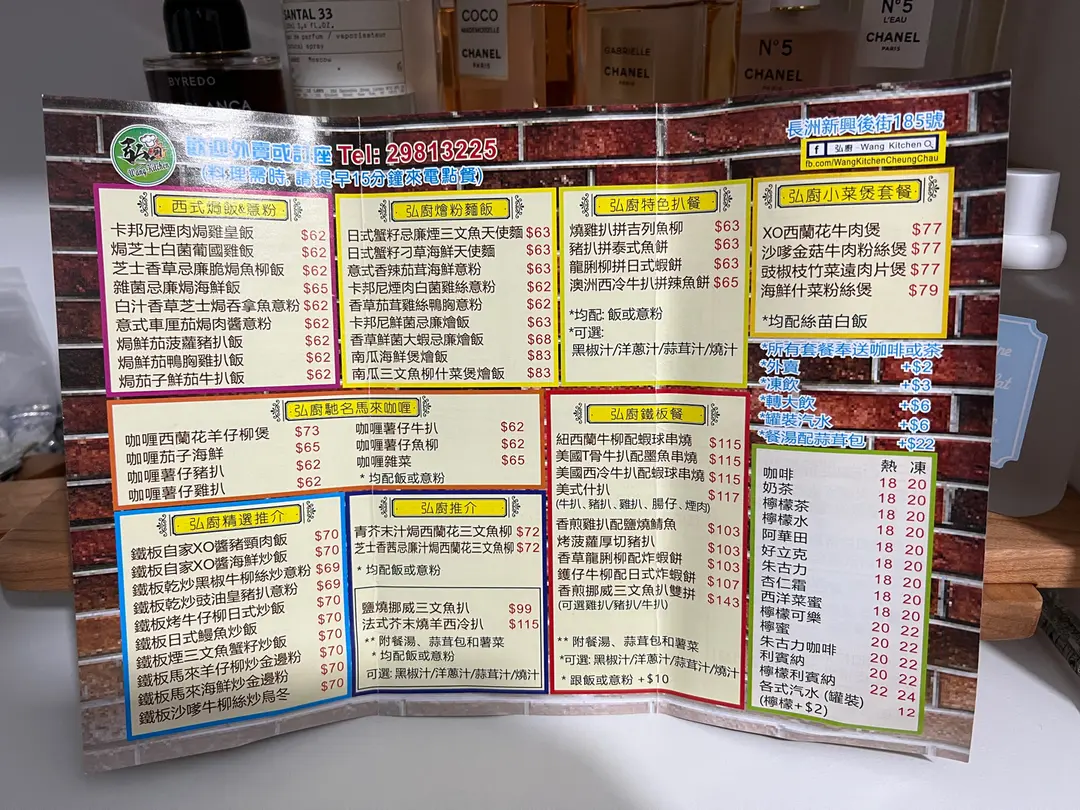 BYREDO
BLANCA
SANTAL 33
eau de parfum / vaporisateur
Moscow
COCO
MADEMOISELLE
CHANEL
PARIS
GABRIELLE
CHANEL
N°5
CHANEL
PARIS
N°5
L'EAU
CHANEL
PARIS
弘廚
Wang Kitchen
歡迎外賣或訂座 Tel: 29813225
(料理需時, 請提早15分鐘來電點餐)
長洲新興後街185號
f 弘廚 - Wang Kitchen
fb.com/WangKitchenCheungChau
西式焗飯&意粉
卡邦尼煙肉焗雞皇飯 $62
焗芝士白菌葡國雞飯 $62
芝士香草忌廉脆焗魚柳飯 $62
雜菌忌廉焗海鮮飯 $65
白汁香草芝士焗吞拿魚意粉 $62
意式車厘茄焗肉醬意粉 $62
焗鮮茄菠蘿豬扒飯 $62
焗鮮茄鴨胸雞扒飯 $62
焗茄子鮮茄牛扒飯 $62
弘廚燴粉麵飯
日式蟹籽忌廉煙三文魚天使麵 $63
日式蟹籽刁草海鮮天使麵 $63
意式香辣茄茸海鮮意粉 $63
卡邦尼煙肉白菌雞絲意粉 $62
香草茄茸雞絲鴨胸意粉 $62
卡邦尼鮮菌忌廉燴飯 $63
香草鮮菌大蝦忌廉燴飯 $68
南瓜海鮮煲燴飯 $83
南瓜三文魚柳什菜煲燴飯 $83
弘廚特色扒餐
燒雞扒拼吉列魚柳 $63
豬扒拼泰式魚餅 $63
龍脷柳拼日式蝦餅 $63
澳洲西冷牛扒拼辣魚餅 $65
*均配: 飯或意粉
*可選:
黑椒汁/洋蔥汁/蒜茸汁/燒汁
弘廚小菜煲套餐
XO西蘭花牛肉煲 $77
沙嗲金菇牛肉粉絲煲 $77
豉椒枝竹菜遠肉片煲 $77
海鮮什菜粉絲煲 $79
*均配絲苗白飯
*所有套餐奉送咖啡或茶
*外賣 +$2
*凍飲 +$3
*轉大飲 +$6
*罐裝汽水 +$6
*餐湯配蒜茸包 +$22
弘廚馳名馬來咖喱
咖喱西蘭花羊仔柳煲 $73
咖喱茄子海鮮 $65
咖喱薯仔豬扒 $62
咖喱薯仔雞扒 $62
咖喱薯仔牛扒 $62
咖喱薯仔魚柳 $62
咖喱雜菜 $65
* 均配飯或意粉
弘廚鐵板餐
紐西蘭牛柳配蝦球串燒 $115
美國T骨牛扒配墨魚串燒 $115
美國西冷牛扒配蝦球串燒 $115
美式什扒 $117
(牛扒、豬扒、雞扒、腸仔、煙肉)
香煎雞扒配鹽燒鯖魚 $103
烤菠蘿厚切豬扒 $103
香草龍脷柳配炸蝦餅 $103
鑊仔牛柳配日式炸蝦餅 $107
香煎挪威三文魚扒雙拼 $143
(可選雞扒/豬扒/牛扒)
** 附餐湯、蒜茸包和薯菜
*可選: 黑椒汁/洋蔥汁/蒜茸汁/燒汁
* 跟飯或意粉 +$10
弘廚精選推介
鐵板自家XO醬豬頸肉飯 $70
鐵板自家XO醬海鮮炒飯 $70
鐵板乾炒黑椒牛柳絲炒意粉 $69
鐵板乾炒豉油皇豬扒意粉 $69
鐵板烤牛仔柳日式炒飯 $70
鐵板日式鰻魚炒飯 $70
鐵板煙三文魚蟹籽炒飯 $70
鐵板馬來羊仔柳炒金邊粉 $70
鐵板馬來海鮮炒金邊粉 $70
鐵板沙嗲牛柳絲炒烏冬 $70
弘廚推介
青芥末汁焗西蘭花三文魚柳 $72
芝士香茜忌廉汁焗西蘭花三文魚柳 $72
* 均配飯或意粉
鹽燒挪威三文魚扒 $99
法式芥末燒羊西冷扒 $115
** 附餐湯、蒜茸包和薯菜
* 均配飯或意粉
可選: 黑椒汁/洋蔥汁/蒜茸汁/燒汁
熱 凍
咖啡 18 20
奶茶 18 20
檸檬茶 18 20
檸檬水 18 20
阿華田 18 20
好立克 18 20
朱古力 18 20
杏仁霜 18 20
西洋菜蜜 18 20
檸檬可樂 20 22
檸蜜 20 22
朱古力咖啡 20 22
利賓納 20 22
檸檬利賓納 22 24
各式汽水 (罐裝) 12
(檸檬+$2)